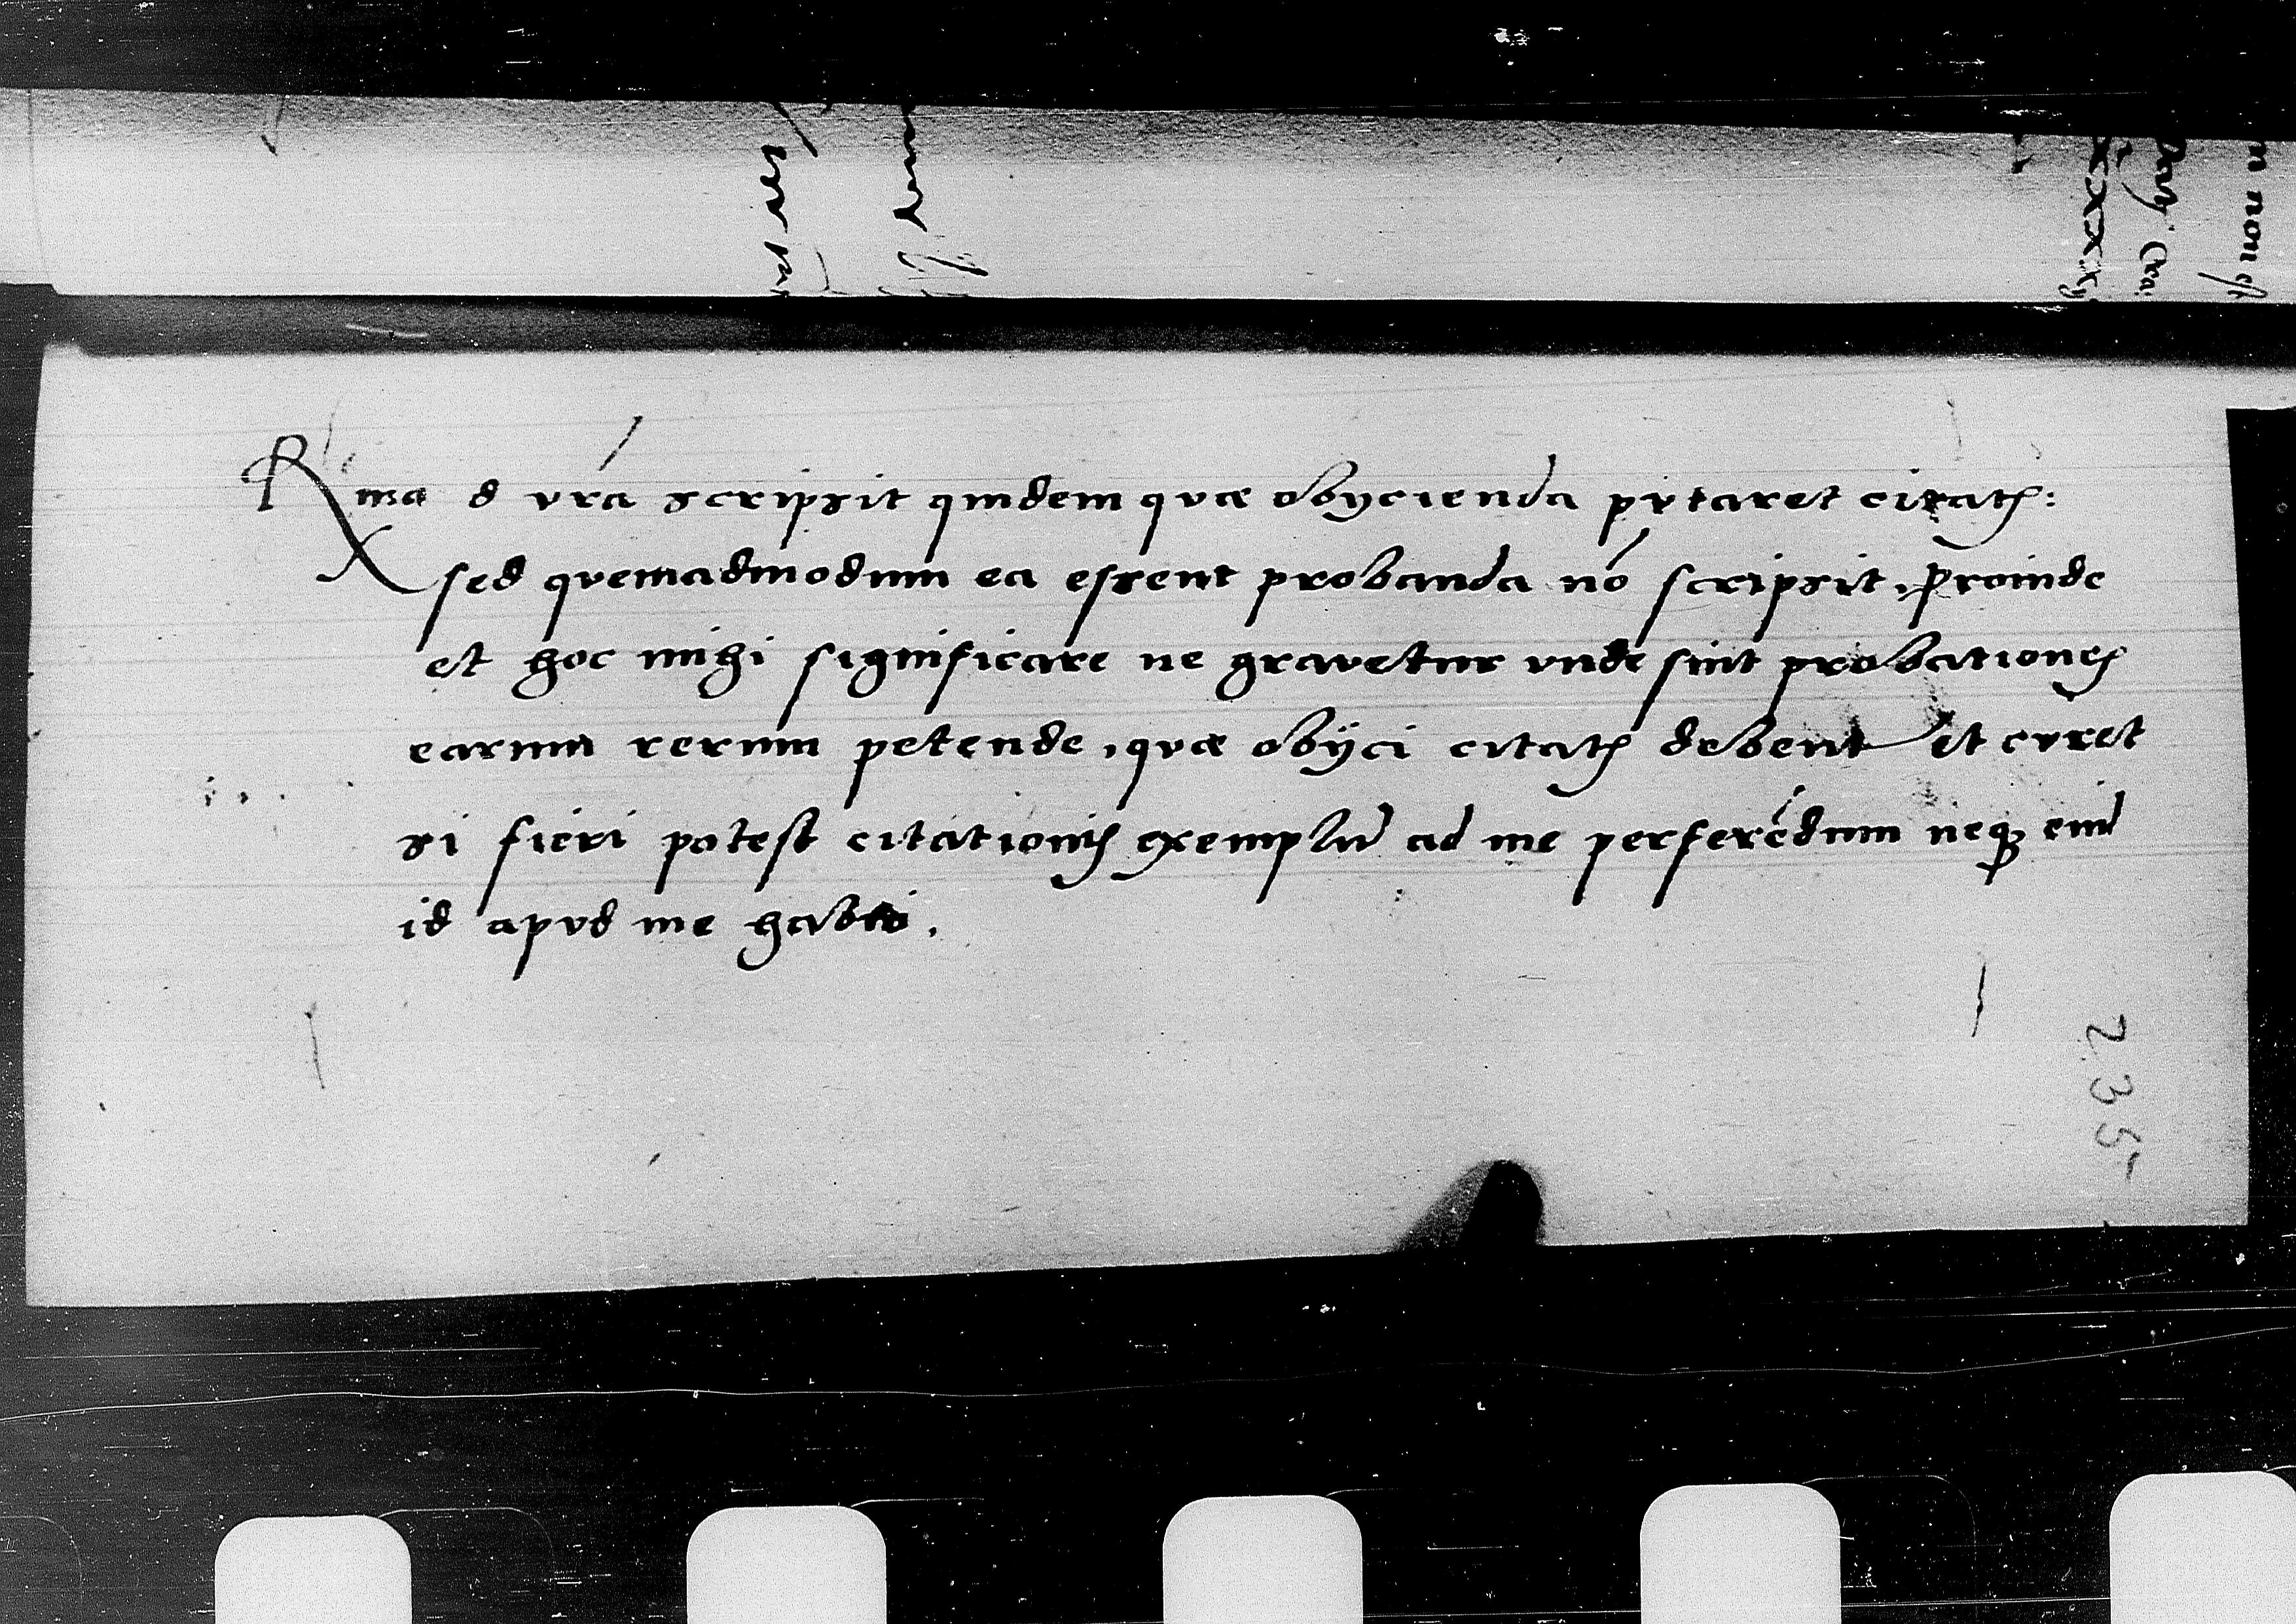 Rma d vrã scripsit quidem quæ obÿcienda pvtaret citatis:
sed qvemadmodum ea essent probanda nõ scripsit, proinde
et hoc mihi significare ne gravetur vnde sint probationes
earum rerum petende, quæ obÿci citatis debent et cvret
si fieri potest citationis exemplũ ad me perferẽdum neqꝫ enĩ
id apvd me habui.
235